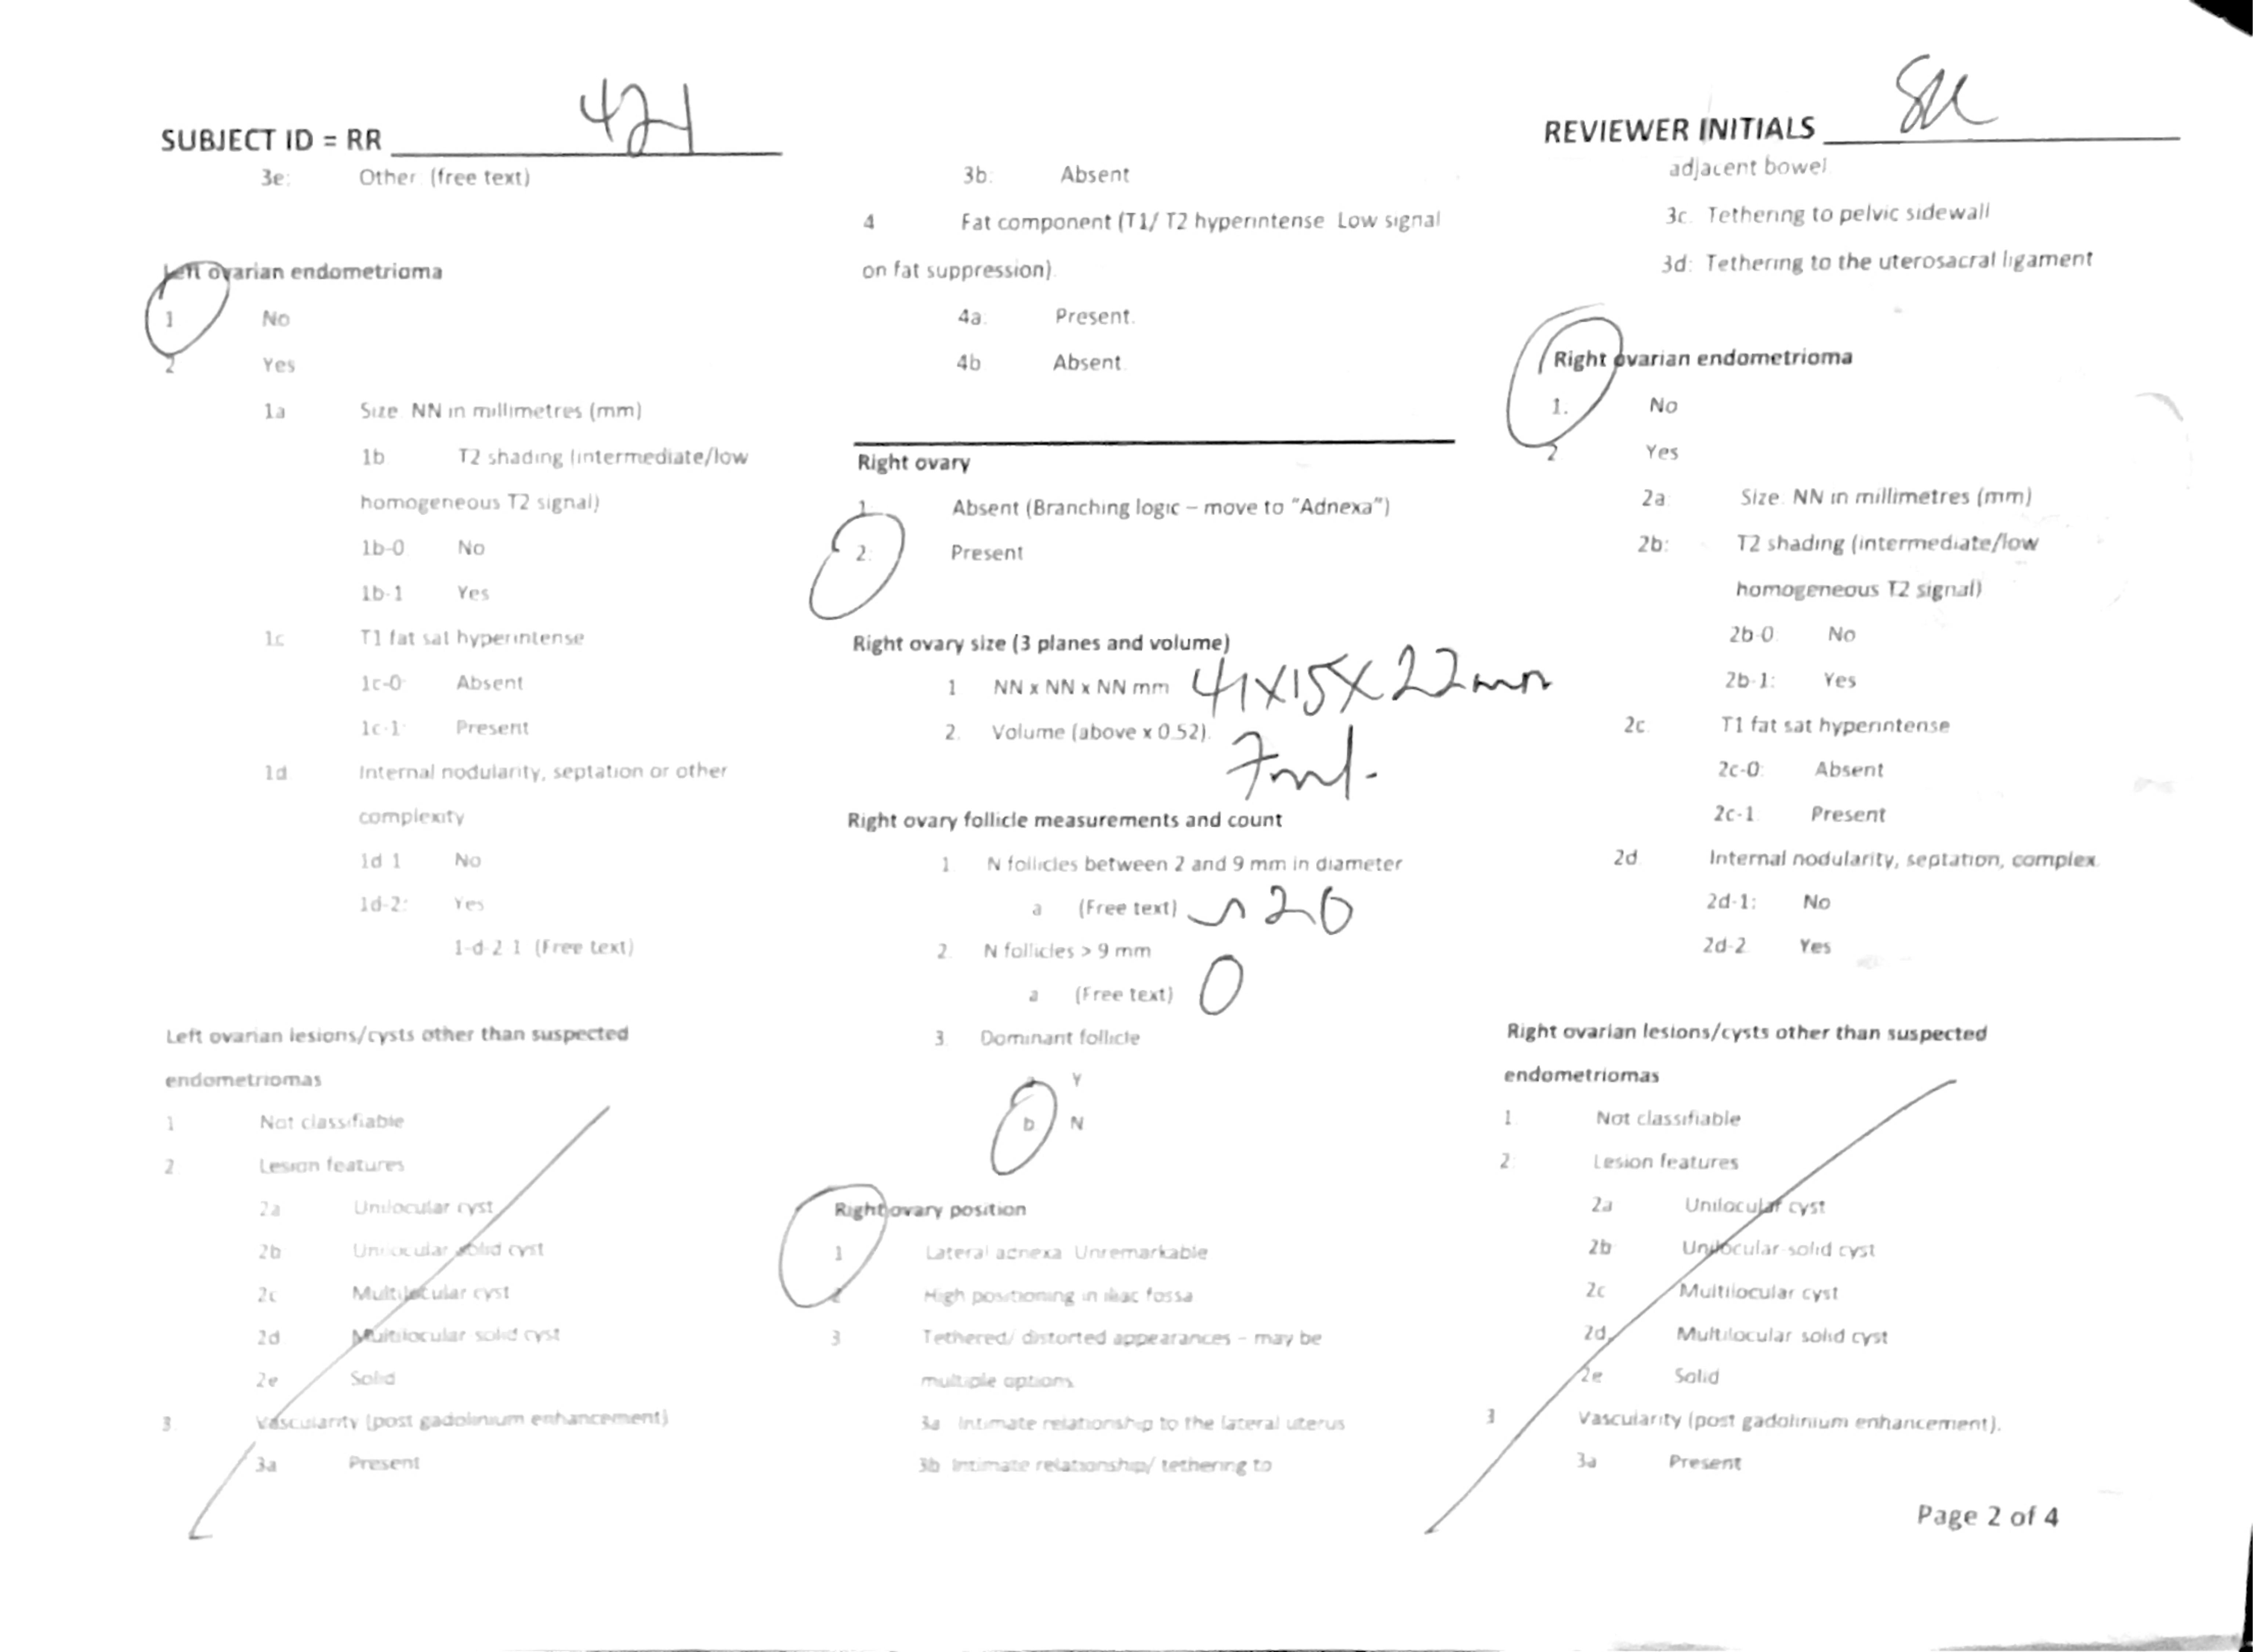 SUBJECT ID = RR 421
REVIEWER INITIALS SM
3e: Other (free text)
Left ovarian endometrioma
1 No
2 Yes
1a Size NN in millimetres (mm)
1b T2 shading (intermediate/low
homogeneous T2 signal)
1b-0 No
1b-1 Yes
1c T1 fat sat hyperintense
1c-0: Absent
1c-1: Present
1d Internal nodularity, septation or other
complexity
1d 1 No
1d-2: Yes
1-d-2 1 (Free text)
Left ovarian lesions/cysts other than suspected
endometriomas
1 Not classifiable
2 Lesion features
2a Unilocular cyst
2b Unilocular solid cyst
2c Multilocular cyst
2d Multilocular solid cyst
2e Solid
3 Vascularity (post gadolinium enhancement)
3a Present
3b: Absent
4 Fat component (T1/ T2 hyperintense Low signal
on fat suppression).
4a: Present.
4b Absent.
Right ovary
1. Absent (Branching logic – move to "Adnexa")
2: Present
Right ovary size (3 planes and volume)
1 NN x NN x NN mm 41X15X22mm
2. Volume (above x 0.52). 7ml.
Right ovary follicle measurements and count
1. N follicles between 2 and 9 mm in diameter
a (Free text) ~20
2. N follicles > 9 mm
a (Free text) 0
3. Dominant follicle
a Y
b N
Right ovary position
1 Lateral adnexa Unremarkable
2 High positioning in iliac fossa
3 Tethered/ distorted appearances – may be
multiple options
3a Intimate relationship to the lateral uterus
3b Intimate relationship/ tethering to
adjacent bowel
3c. Tethering to pelvic sidewall
3d: Tethering to the uterosacral ligament
Right ovarian endometrioma
1. No
2 Yes
2a Size. NN in millimetres (mm)
2b: T2 shading (intermediate/low
homogeneous T2 signal)
2b-0. No
2b-1: Yes
2c. T1 fat sat hyperintense
2c-0: Absent
2c-1. Present
2d. Internal nodularity, septation, complex.
2d-1: No
2d-2 Yes
Right ovarian lesions/cysts other than suspected
endometriomas
1. Not classifiable
2: Lesion features
2a Unilocular cyst
2b Unilocular-solid cyst
2c Multilocular cyst
2d Multilocular solid cyst
2e Solid
3 Vascularity (post gadolinium enhancement).
3a Present
Page 2 of 4